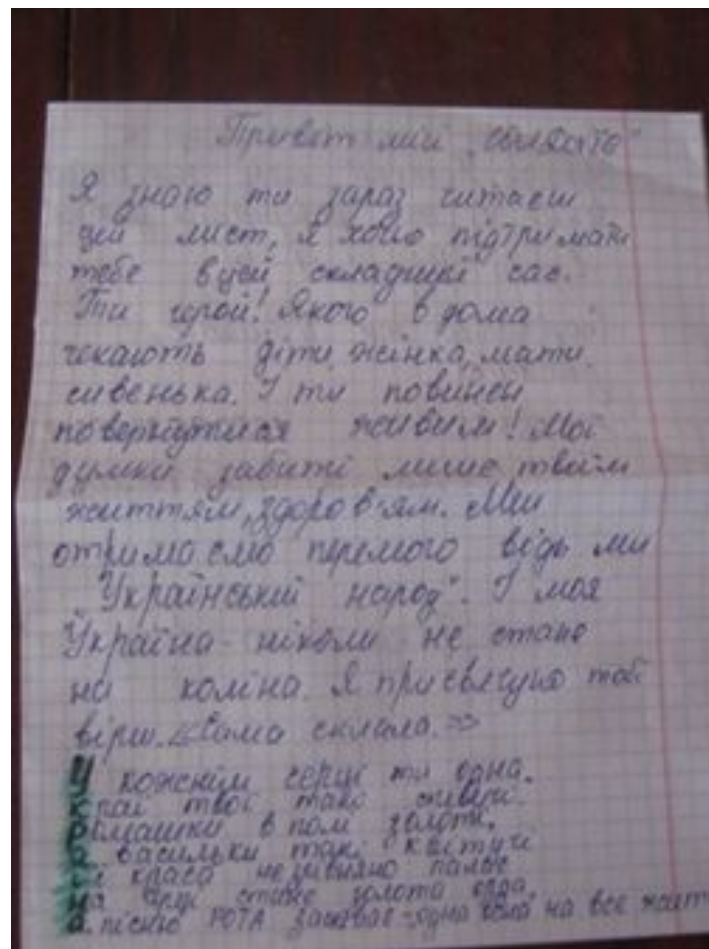 Привет мій "
Я знаю ти зараз читаєш
цей лист, я хочу підтримати
тебе в цей складний час.
Ти герой! Якого вдома
чекають діти, жінка, мати
сивенька. І ти повинен
повернутися живим! Мої
думки забиті лише твоїм
життям, здоров'ям. Ми
отримаємо перемого відь ми
"Український народ". І моя
Україна ніколи не стане
на коліна. Я присвячую тобі
вірш. Сама склала. =>
У кожнім серці ти одна.
краї твої такі
Ромашки в полі золоті,
васильки такі квітучі
краса
на золота
А пісню РОТА одна на все життя